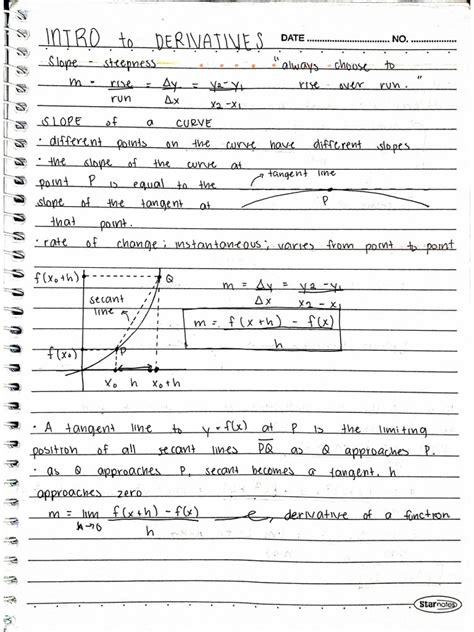 INTRO to DERIVATIVES DATE NO.
Slope - steepness "always choose to
m = rise/run = Δy/Δx = y2-y1/x2-x1 rise over run."
SLOPE of a CURVE
· different points on the curve have different slopes
· the slope of the curve at
tangent line
point P is equal to the
P
slope of the tangent at
that point.
· rate of change: instantaneous; varies from point to point
f(x0+h) Q
m = Δy/Δx = y2-y1/x2-x1
secant
line
m = f(x+h) - f(x)/h
f(x0) P
x0 h x0+h
· A tangent line to y=f(x) at P is the limiting
position of all secant lines PQ as Q approaches P.
· as Q approaches P, secant becomes a tangent. h
approaches zero
m = lim h→0 f(x+h) - f(x)/h e, derivative of a function
Starnotes